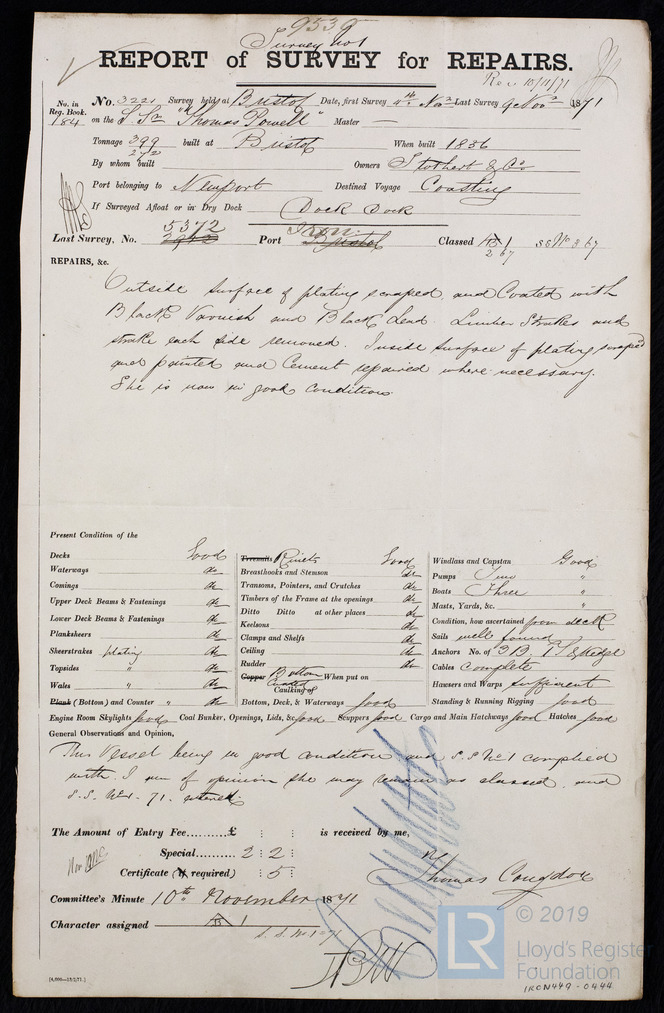 9539
Survey No 1
REPORT of SURVEY for REPAIRS.
Rec 10/11/71
No. in Reg. Book. 184
No. 3221 Survey held at Bristol Date, first Survey 4th Nov Last Survey 9 Nov 1871
on the S Sr "Thomas Powell" Master —
Tonnage 399 built at Bristol When built 1856
272
By whom built Owners Stothert & Co
Port belonging to Newport Destined Voyage Coasting
If Surveyed Afloat or in Dry Dock Dock Dock
5372
Iron.
Last Survey, No. Port Bristol Classed A 1 SS No 3 67
2 67
REPAIRS, &c.
Outside surface of plating scraped and Coated with
Black Varnish and Black Lead. Limber Strakes and
strake each side removed. Inside surface of plating scraped
and painted and Cement repaired where necessary.
She is now in good condition.
Present Condition of the
Decks Good
Waterways do
Comings do
Upper Deck Beams & Fastenings do
Lower Deck Beams & Fastenings do
Planksheers do
Sheerstrakes plating do
Topsides " do
Wales " do
Plank (Bottom) and Counter " do
Treenails Rivets Good
Breasthooks and Stemson do
Transoms, Pointers, and Crutches do
Timbers of the Frame at the openings do
Ditto Ditto at other places do
Keelsons do
Clamps and Shelfs do
Ceiling do
Rudder do
Copper Bottom When put on
Coated
Caulking of
Bottom, Deck, & Waterways Good
Windlass and Capstan Good
Pumps Two "
Boats Three "
Masts, Yards, &c. "
Condition, how ascertained from deck
Sails well found
Anchors No. of 3 B. 1 S & Kedge
Cables Complete
Hawsers and Warps sufficient
Standing & Running Rigging Good
Engine Room Skylights Good Coal Bunker, Openings, Lids, &c Good Scuppers Good Cargo and Main Hatchways Good Hatches Good
General Observations and Opinion,
This Vessel being in good condition and S.S No 1 complied
with. I am of opinion she may remain as classed, and
S.S. No 1. 71.
The Amount of Entry Fee.........£ : : is received by me,
Special.......... 2 : 2 :
Certificate (if required) : 5 :
Thomas Congdon
Committee's Minute 10th November 1871
Character assigned A 1
S.S. No 1-71
[4,000—13/2/71.]
LR
© 2019
Lloyd's Register
Foundation
IRON449-0444